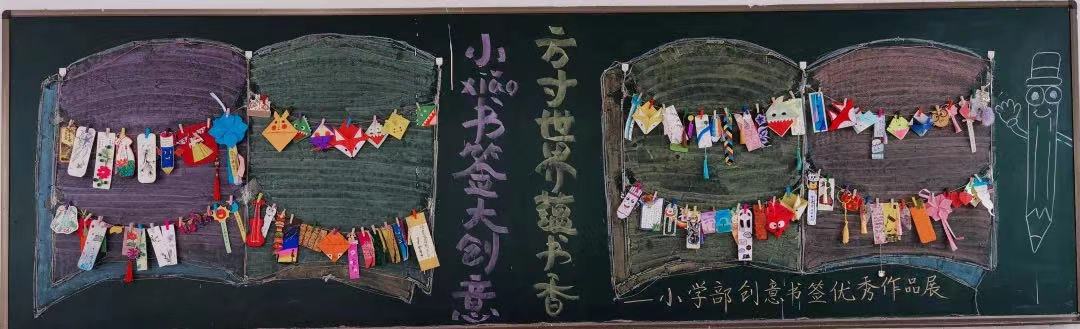 方寸世界蕴书香
小书签大创意
xiǎo
——小学部创意书签优秀作品展